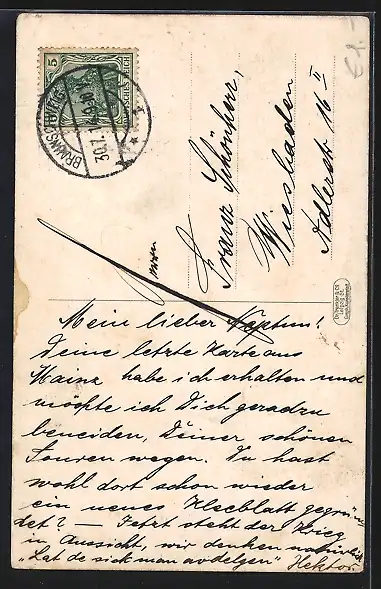 5
DEUTSCHES REICH
BRAUNSCHWEIG
30.7.14
Herrn
Franz Schönherr,
Wiesbaden
Adlerstr 16 II
Mein lieber Neptun!
Deine letzte Karte aus
Mainz habe ich erhalten und
möchte ich Dich geradzu
beneiden, Deiner, schönen
Touren wegen. Du hast
wohl dort schon wieder
ein neues Kleeblatt gegrün=
det? — Jetzt steht der Krieg
in Aussicht, wir denken natürlich
"Lat de sick man
Hektor.